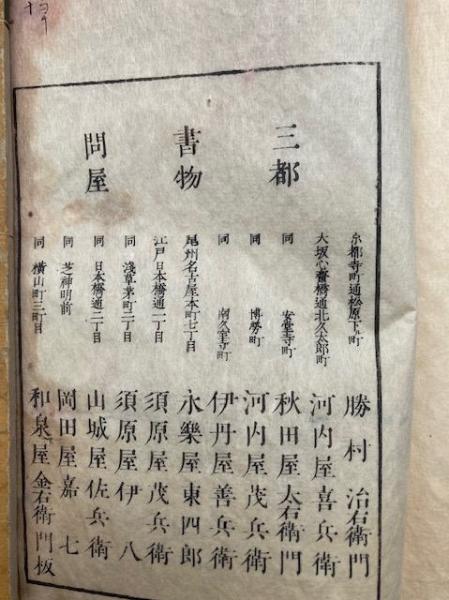 三都
書物
問屋
京都寺町通松原下ル町 勝村治右衛門
大坂心斎橋通北久太郎町 河内屋喜兵衛
同 安堂寺町 秋田屋太右衛門
同 博労町 河内屋茂兵衛
同 南久宝寺町 伊丹屋善兵衛
尾州名古屋本町七丁目 永樂屋東四郎
江戸日本橋通一丁目 須原屋茂兵衛
同 浅草茅町二丁目 須原屋伊八
同 日本橋通二丁目 山城屋佐兵衛
同 芝神明前 岡田屋嘉七
同 横山町三町目 和泉屋金右衛門板